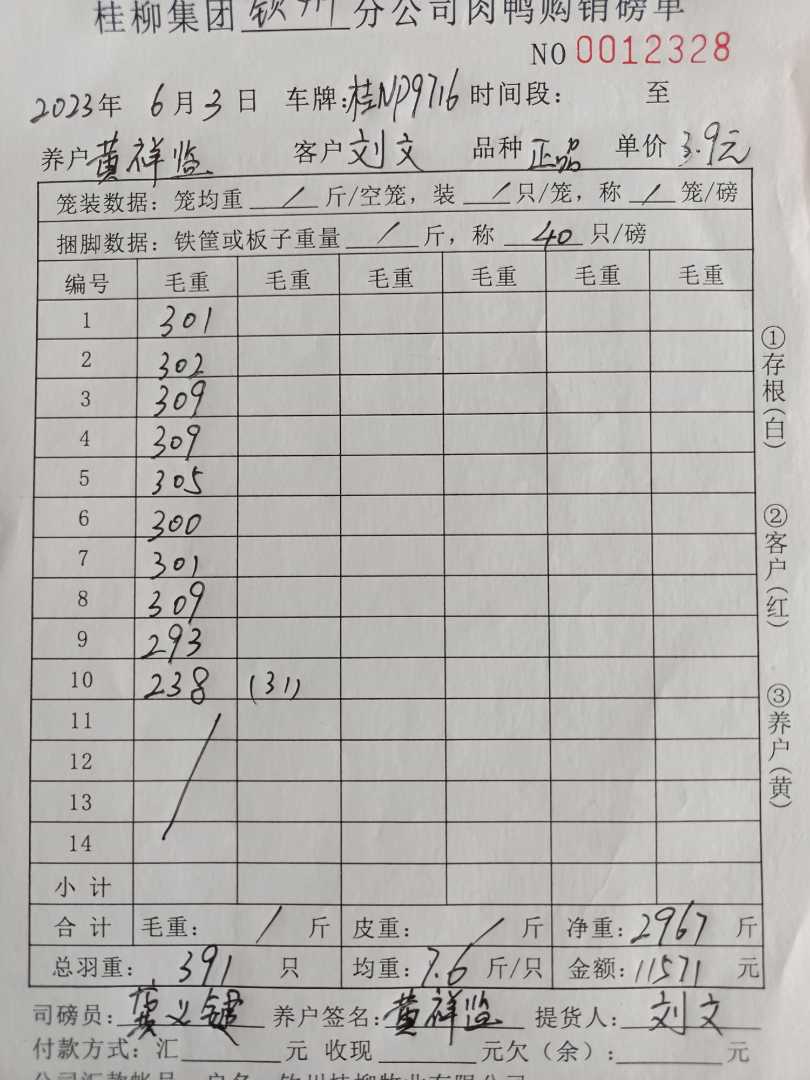 桂柳集团钦州分公司肉鸭购销磅单
NO 0012328
2023年 6月3日 车牌:桂NP9716 时间段: 至
养户黄祥监 客户刘文 品种正品 单价3.9元
笼装数据:笼均重 / 斤/空笼,装 / 只/笼,称 / 笼/磅
捆脚数据:铁筐或板子重量 / 斤,称 40 只/磅
编号 毛重 毛重 毛重 毛重 毛重 毛重
1 301
2 302
3 309
4 309
5 305
6 300
7 301
8 309
9 293
10 238 (31)
11
12
13
14
小计
合计 毛重: / 斤 皮重: / 斤 净重:2967斤
总羽重: 391 只 均重:7.6斤/只 金额:11571元
司磅员:龚义键 养户签名:黄祥监 提货人:刘文
付款方式:汇 元 收现 元欠(余): 元
①存根(白)
②客户(红)
③养户(黄)